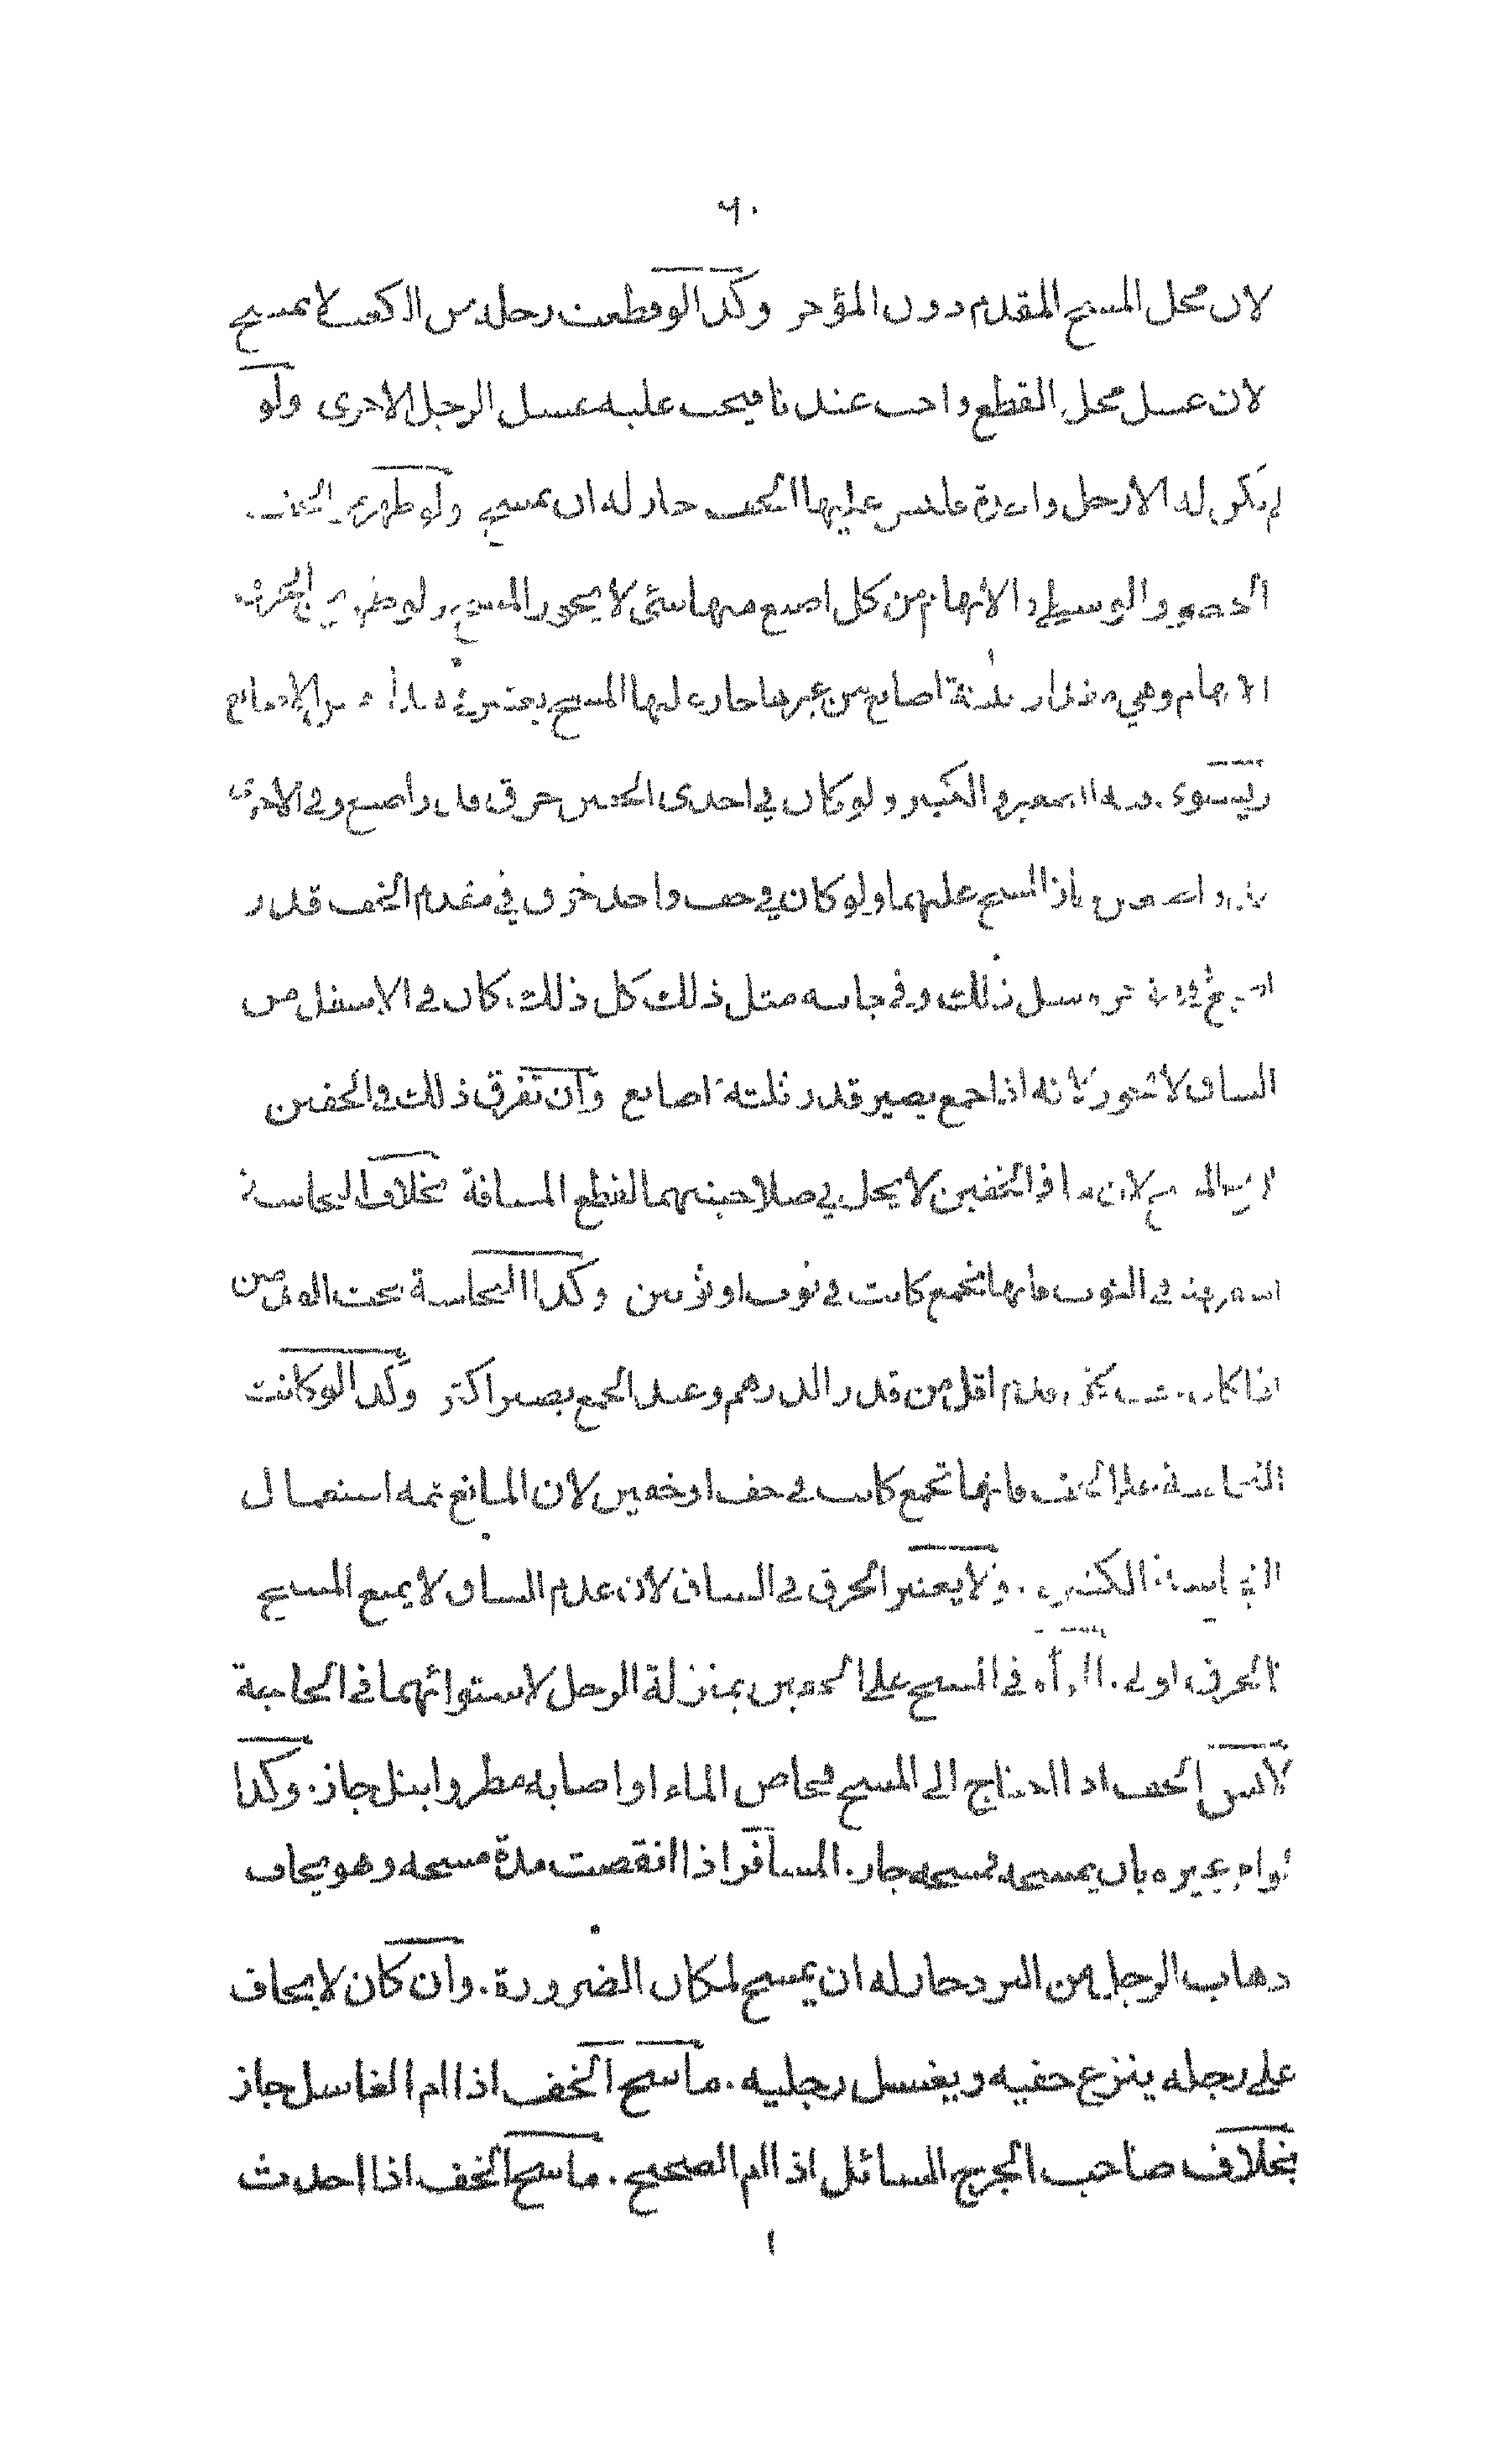 ٦٠
لان محل المسح المقدم دون المؤخر وكذا لو قطعت رجله من الكعب لا يمسح
لان غسل محل القطع واجب عندنا فيجب عليه غسل الرجل الاخرى ولو
لم يكن له الا رجل واحدة فلبس عليها الخف جاز له ان يمسح ولو ظهر من الخف
الخنصر والوسطى والابهام من كل اصبع منها شئ لا يجوز المسح ولو ظهر من الخرق
الابهام وهي مقدار ثلثة اصابع من غيرها جاز عليها المسح يعتبر في هذا الاصابع
ويستوي الصغير والكبير ولو كان في احدى الخفين خرق قدر اصبع وفي الاخرى
جاز المسح عليهما ولو كان في خف واحد خرق في مقدم الخف قدر
اصبع وفي مثل ذلك وفي جانبه مثل ذلك كل ذلك كان في الاسفل من
الساق لا يجوز لانه اذا جمع يصير قدر ثلثة اصابع وان تفرق ذلك في الخفين
المسح لان في الخفين لا يخل في صلاحيتهما لقطع المسافة بخلاف النجاسة
في الثوب فانها تجمع كانت في ثوب او ثوبين وكذا النجاسة تحت القدمين
اذا كان تحت كل قدم اقل من قدر الدرهم وعند الجمع يصير اكثر وكذا لو كانت
النجاسة على الخف فانها تجمع كانت في خف او خفين لان المانع ثمه استعمال
النجاسة الكثيرة. ولا يعتبر الخرق في الساق لان عدم الساق لا يمنع المسح
فالخرق اولى. المرأة في المسح على الخفين بمنزلة الرجل لاستوائهما في الحاجة
لابس الخف اذا احتاج الى المسح فخاض الماء او اصابه مطر وابتل جاز. وكذا
لو امر غيره بان يمسحه فمسحه جاز. المسافر اذا انقضت مدة مسحه وهو يخاف
ذهاب الرجل من البرد جاز له ان يمسح لمكان الضرورة. وان كان لا يخاف
على رجله ينزع خفيه ويغسل رجليه. ماسح الخف اذا ام الغاسل جاز
بخلاف صاحب الجرح السائل اذا ام الصحيح. ماسح الخف اذا احدث
١